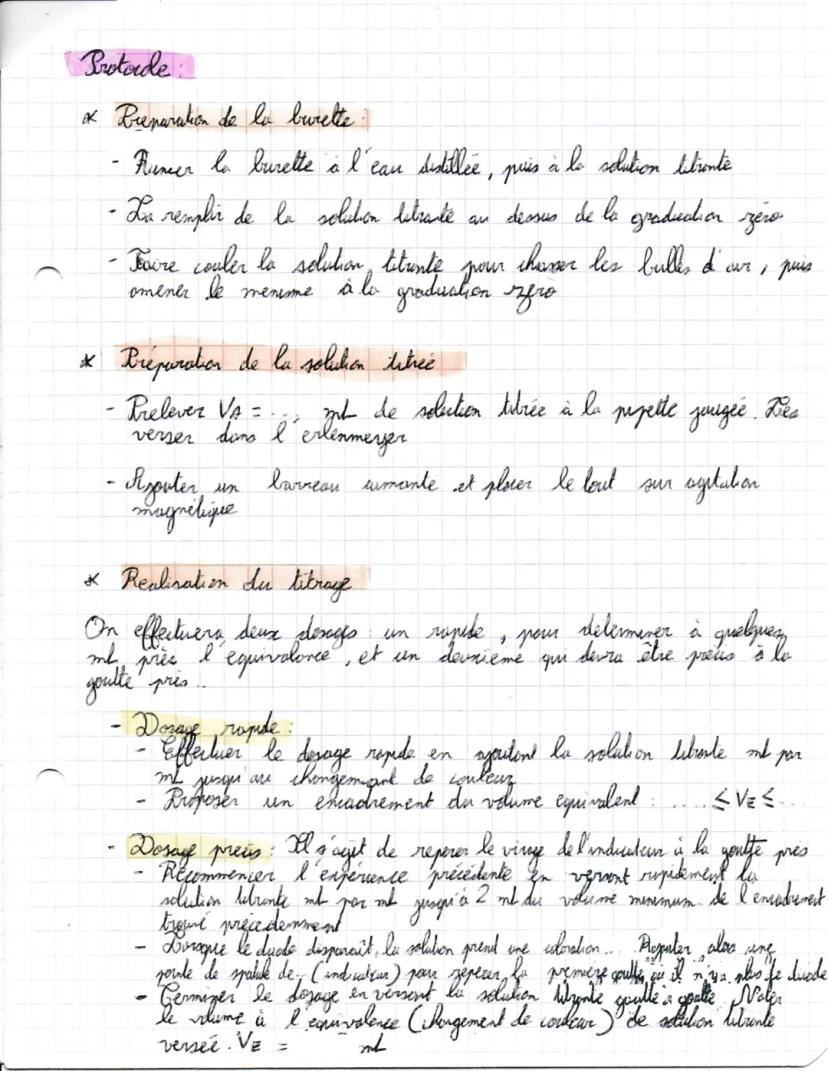 Protocole :
* Préparation de la burette :
- Rincer la burette à l'eau distillée, puis à la solution titrante
- La remplir de la solution titrante au dessus de la graduation zéro
- Faire couler la solution titrante pour chasser les bulles d'air, puis
amener le menisme à la graduation zéro
* Préparation de la solution titrée
- Prelever VA = .... mL de solution titrée à la pipette jaugée. Les
verser dans l'erlenmeyer
- Ajouter un barreau aimanté et placer le tout sur agitation
magnétique
* Realisation du titrage
On effectuera deux dosages : un rapide, pour déterminer à quelques
mL près l'équivalence, et un deuxième qui devra être précis à la
goutte près..
- Dosage rapide :
- Effectuer le dosage rapide en ajoutant la solution titrante mL par
mL jusqu'au changement de couleur
- Proposer un encadrement du volume équivalent : ..... ≤ VE ≤ ...
- Dosage precis : Il s'agit de reperer le virage de l'indicateur à la goutte près
- Recommencer l'expérience précédente en versant rapidement la
solution titrante mL par mL jusqu'à 2 mL du volume minimum de l'encadrement
trouvé précedemment
- Lorsque le diode disparaît, la solution prend une coloration... Rajouter alors une
pointe de spatule de.. (indicateur) pour repérer la première goutte où il n'y a plus de diode
- Terminer le dosage en versant la solution titrante goutte à goutte. Noter
le volume à l'équivalence (changement de couleur) de solution titrante
versée. VE = mL